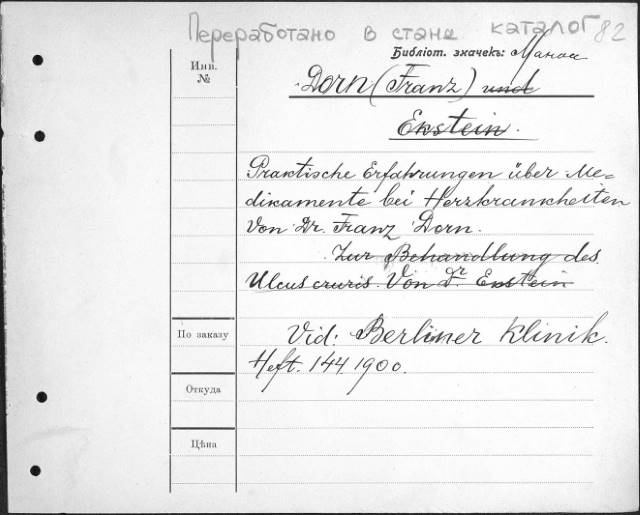 Переработано в стан каталог 82
Библіот. значекъ:
Инв.
№
Dorn (Franz) und
Ekstein.
Praktische Erfahrungen über Me-
dikamente bei Herzkrankheiten
Von Dr. Franz Dorn.
Zur Behandlung des
Ulcus cruris. Von Dr. Ekstein
По заказу
Vid: Berliner Klinik.
Heft. 144 1900.
Откуда
Цѣна